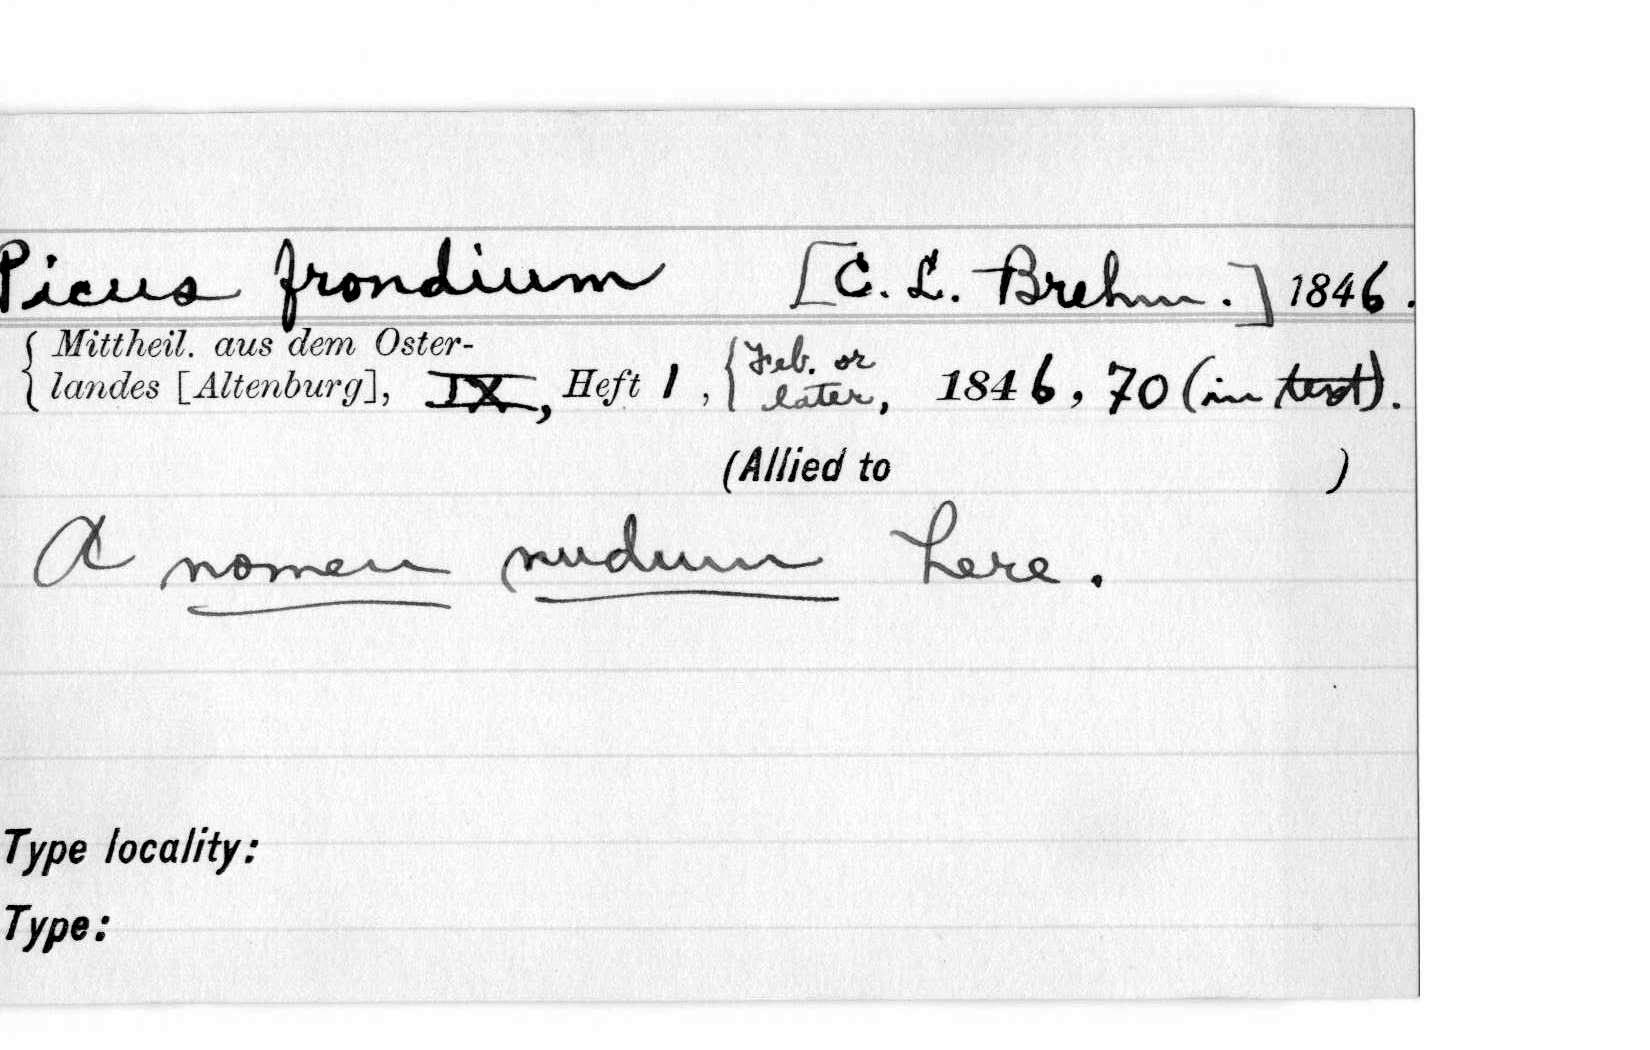 Picus frondium [C. L. Brehm.] 1846.
Mittheil. aus dem Oster-
landes [Altenburg], IX, Heft 1, {Feb. or later, 1846, 70 (in text).
(Allied to )
A nomen nudum here.
Type locality:
Type: